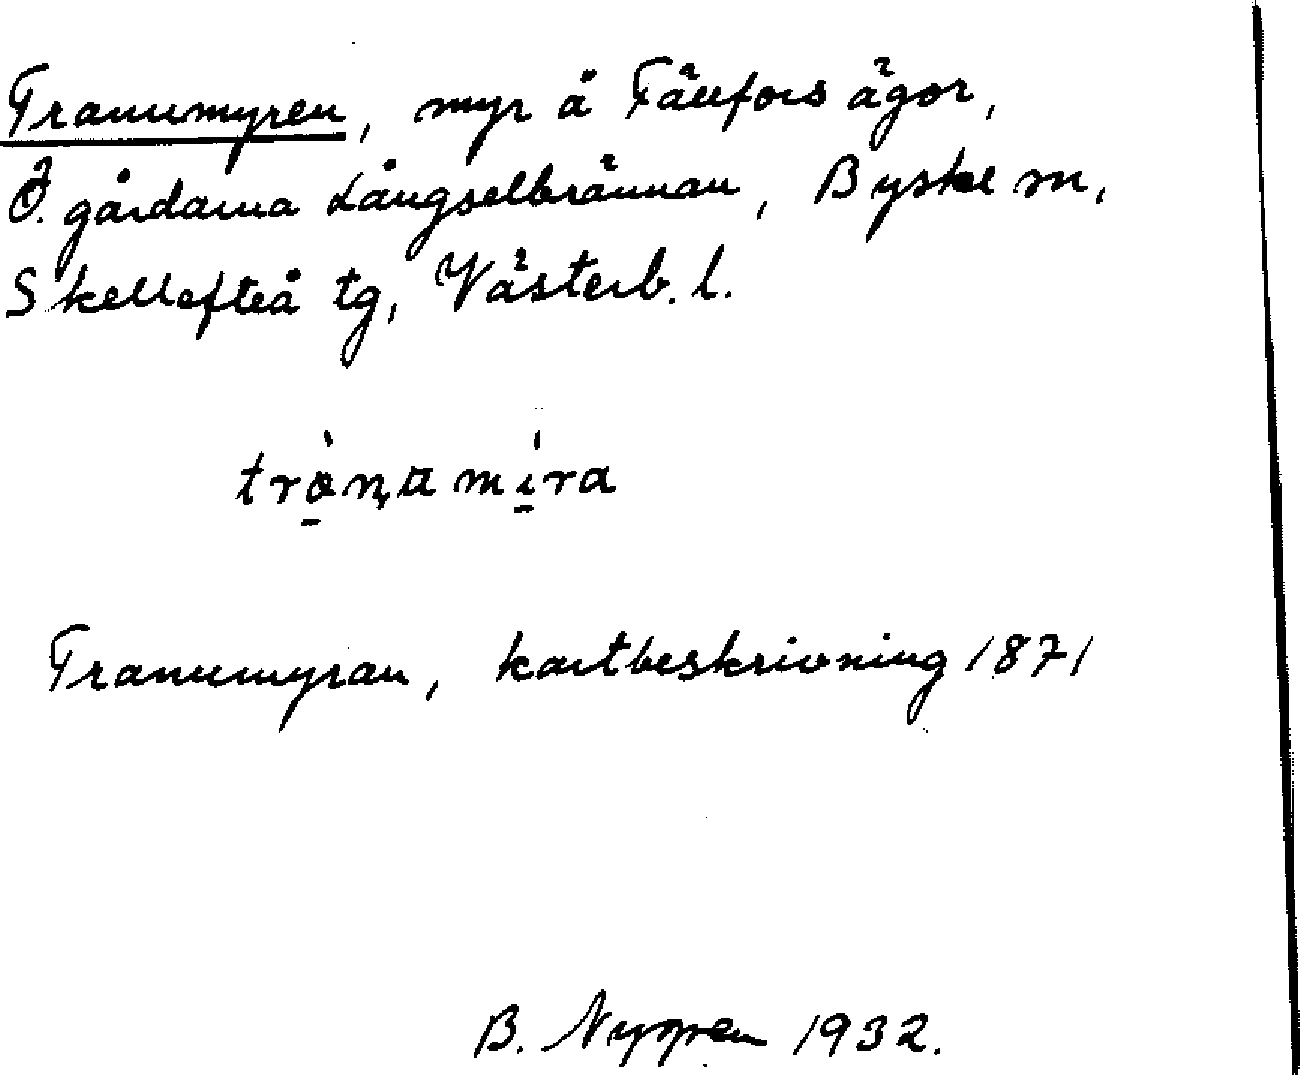 Tranumyren, myr å Fällfors ägor,
Ö. gårdarna Långselbrännan, Byske sn,
Skellefteå tg, Västerb. l.
Tranumyran, kartbeskrivning 1871
B. Nygren 1932.